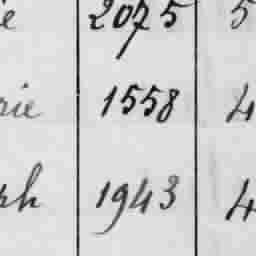 e 2075 5
rie 1558 4
ph 1943 4